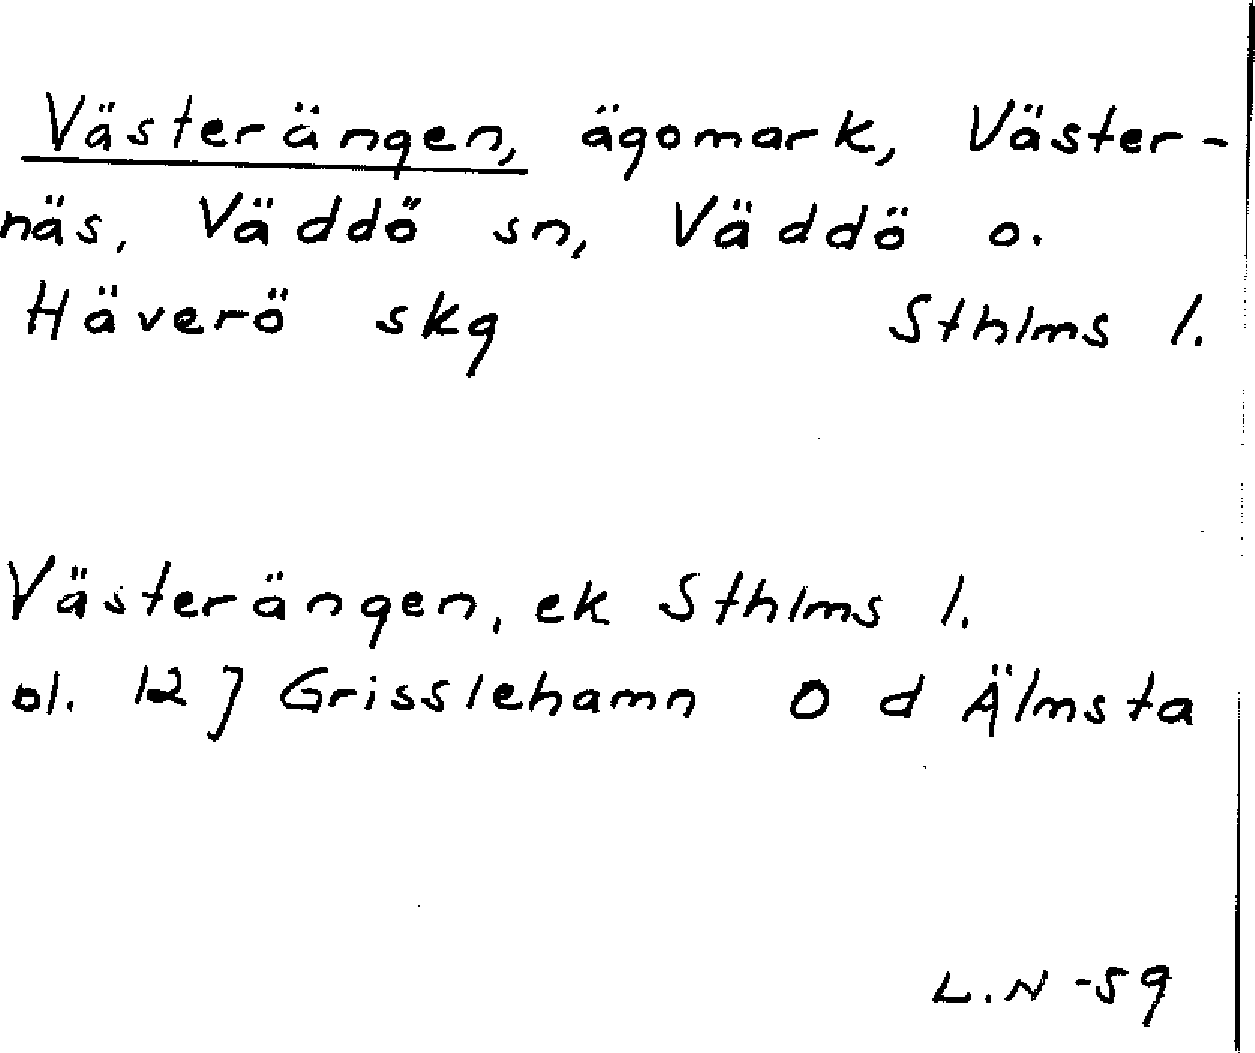 Västerängen, ägomark, Väster-
näs, Väddö sn, Väddö o.
Häverö skg Sthlms l.
Västerängen, ek Sthlms l.
bl. 12 J Grisslehamn O d Älmsta
L.N -59